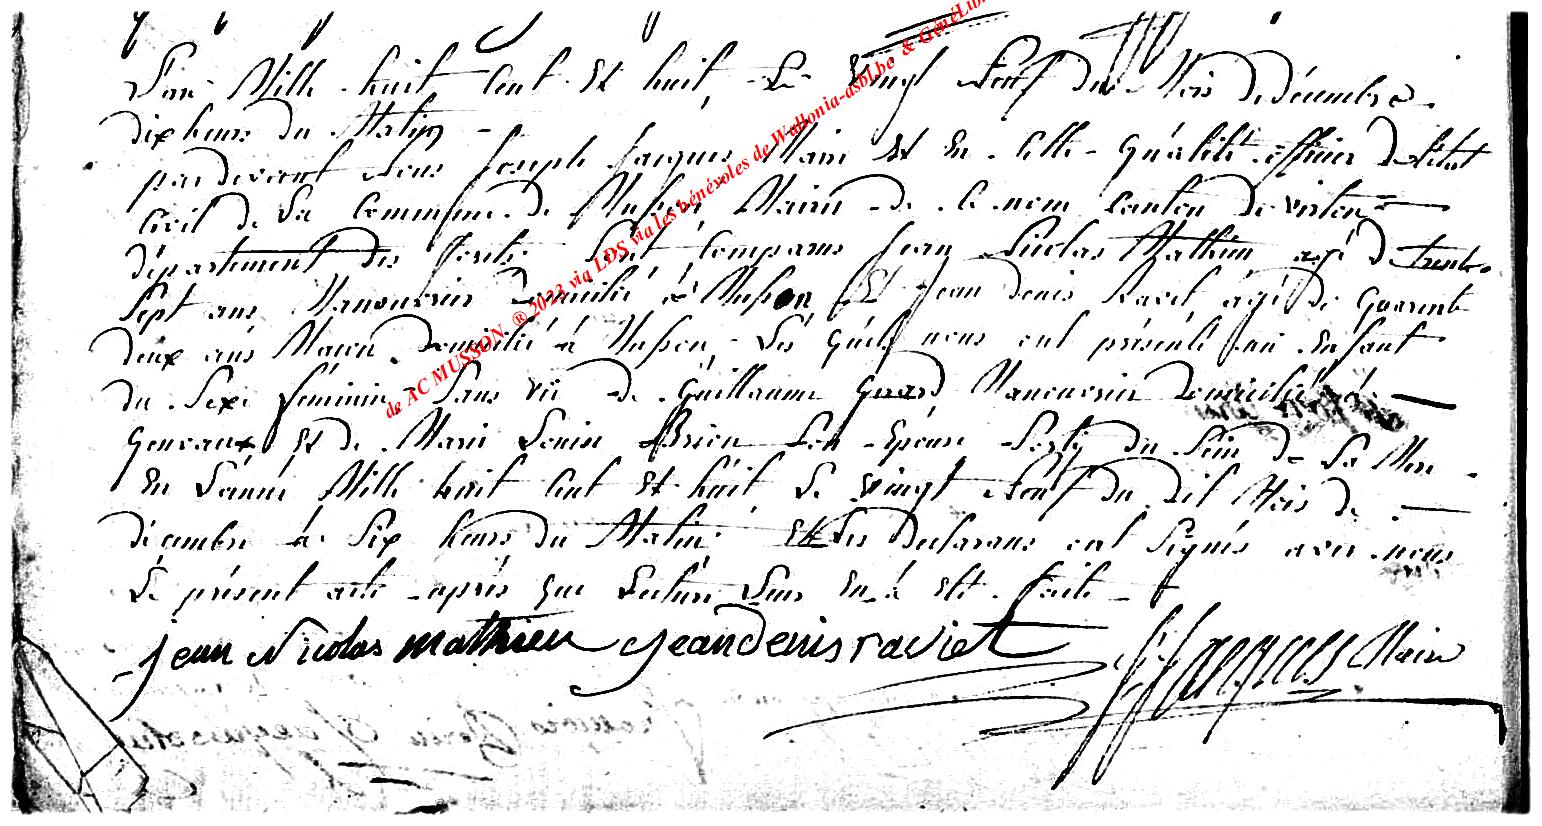 L'an Mille huit Cent Et huit, Le Vingt Neuf du Mois De décembre
dix heures du Matin
pardevant Nous Joseph Jacques Maire Et En Cette Qualité officier De l'état
Civil de La Commune de Musson Mairie de Ce nom Canton De virton
département des forêts Sont Comparus Jean Nicolas Mathieu agé De trente
Sept ans Manouvrier Domicilié à Musson Et Jean denis Raviet agé De quarante
deux ans Maçon Domicilié à Musson, Les quels nous ont présenté un Enfant
du Sexe féminin Sans vie De Guillaume Manouvrier Domicilié à
Gennevaux Et de Marie Brion Son Epouse Sortie du Sein de La Mere
En L'année Mille huit Cent Et huit Le vingt Neuf du dit Mois de
décembre à Six heures du Matin Et Les Declarans ont Signés avec nous
Le présent acte après que Lecture Leur En à Eté faite
jean Nicolas mathieu Jean Denis raviet J Jacques Maire
de AC MUSSON ® 2023 via LDS via les bénévoles de Wallonia-asbl.be & GénéLib